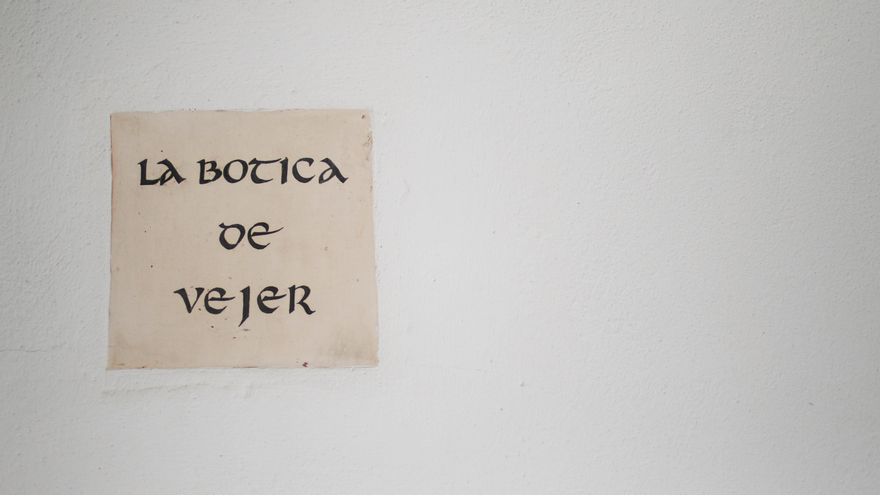 LA BOTICA
DE
VEJER